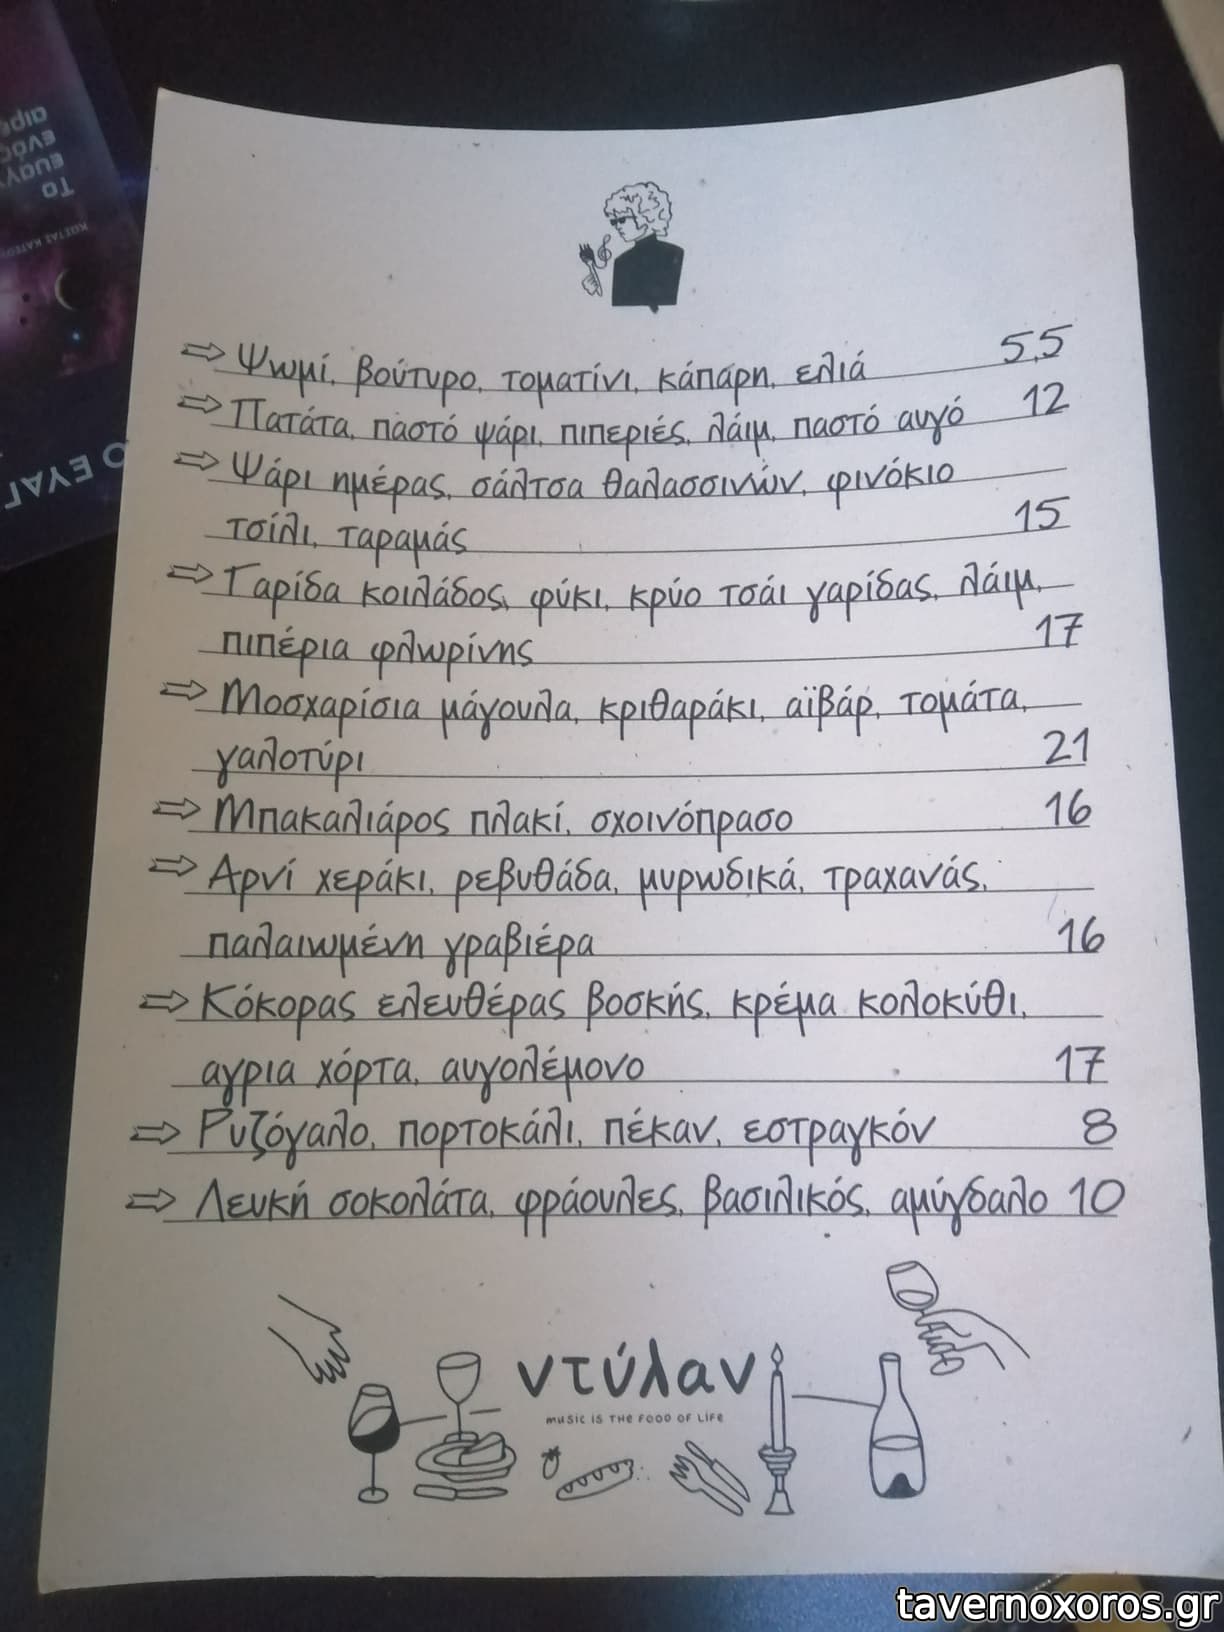 ⇨ Ψωμί, βούτυρο, τοματίνι, κάπαρη, ελιά 5,5
⇨ Πατάτα, παστό ψάρι, πιπεριές, λάιμ, παστό αυγό 12
⇨ Ψάρι ημέρας, σάλτσα θαλασσινών, φινόκιο
τσίλι, ταραμάς 15
⇨ Γαρίδα κοιλάδος, φύκι, κρύο τσάι γαρίδας, λάιμ,
πιπέρια φλωρίνης 17
⇨ Μοσχαρίσια μάγουλα, κριθαράκι, αϊβάρ, τομάτα,
γαλοτύρι 21
⇨ Μπακαλιάρος πλακί, σχοινόπρασο 16
⇨ Αρνί χεράκι, ρεβυθάδα, μυρωδικά, τραχανάς,
παλαιωμένη γραβιέρα 16
⇨ Κόκορας ελευθέρας βοσκής, κρέμα κολοκύθι,
αγρια χόρτα, αυγολέμονο 17
⇨ Ρυζόγαλο, πορτοκάλι, πέκαν, εστραγκόν 8
⇨ Λευκή σοκολάτα, φράουλες, βασιλικός, αμύγδαλο 10
ντύλαν
MUSIC IS THE FOOD OF LIFE
ΤΟ
ΕΝΟΣ
tavernoxoros.gr